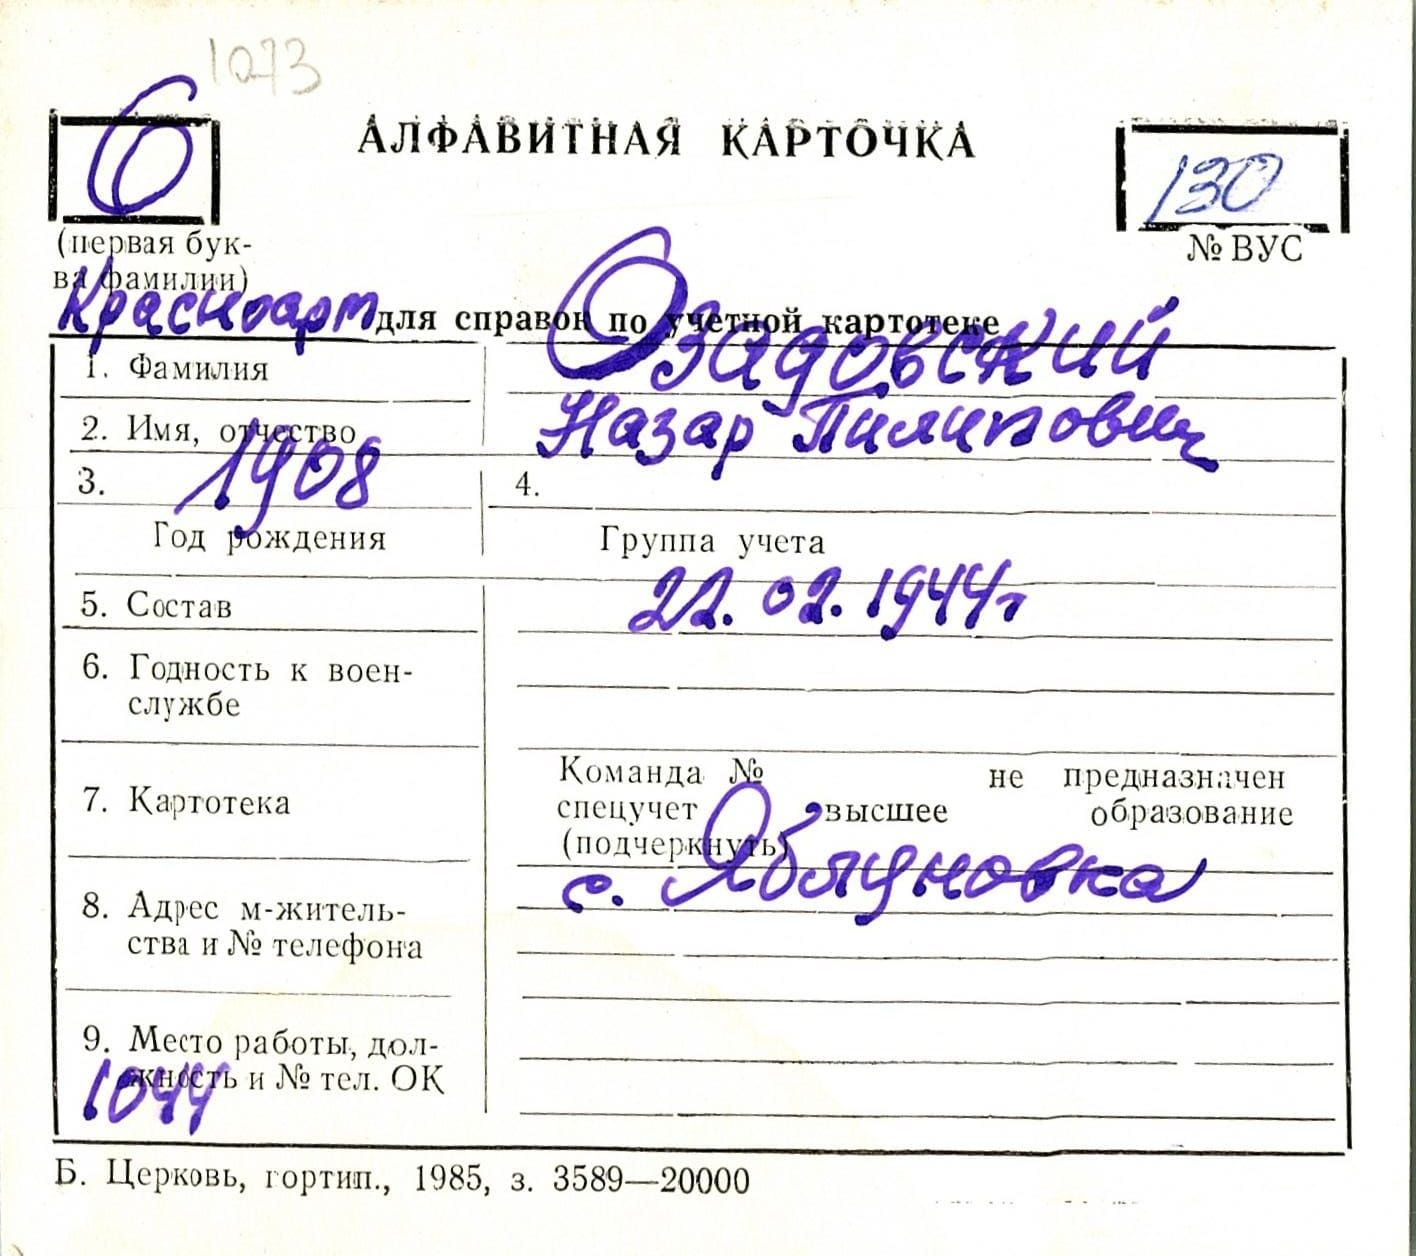 1073
О
АЛФАВИТНАЯ КАРТОЧКА
130
(первая бук-
ва фамилии)
№ ВУС
Красноарм для справок по учетной картотеке
1. Фамилия Озадовский
2. Имя, отчество Назар Пилипович
3. 1908 4.
Год рождения Группа учета
5. Состав 22.02.1944г
6. Годность к воен-
службе
7. Картотека
Команда № не предназначен
спецучет высшее образование
(подчеркнуть)
8. Адрес м-житель-
ства и № телефона
с. Яблуновка
9. Место работы, дол-
жность и № тел. ОК
1044
Б. Церковь, гортип., 1985, з. 3589—20000